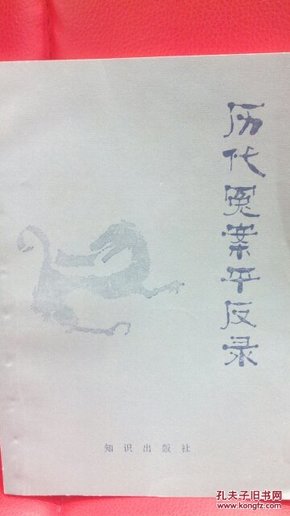 历代冤案平反录
知识出版社
孔夫子旧书网
www.kongfz.com